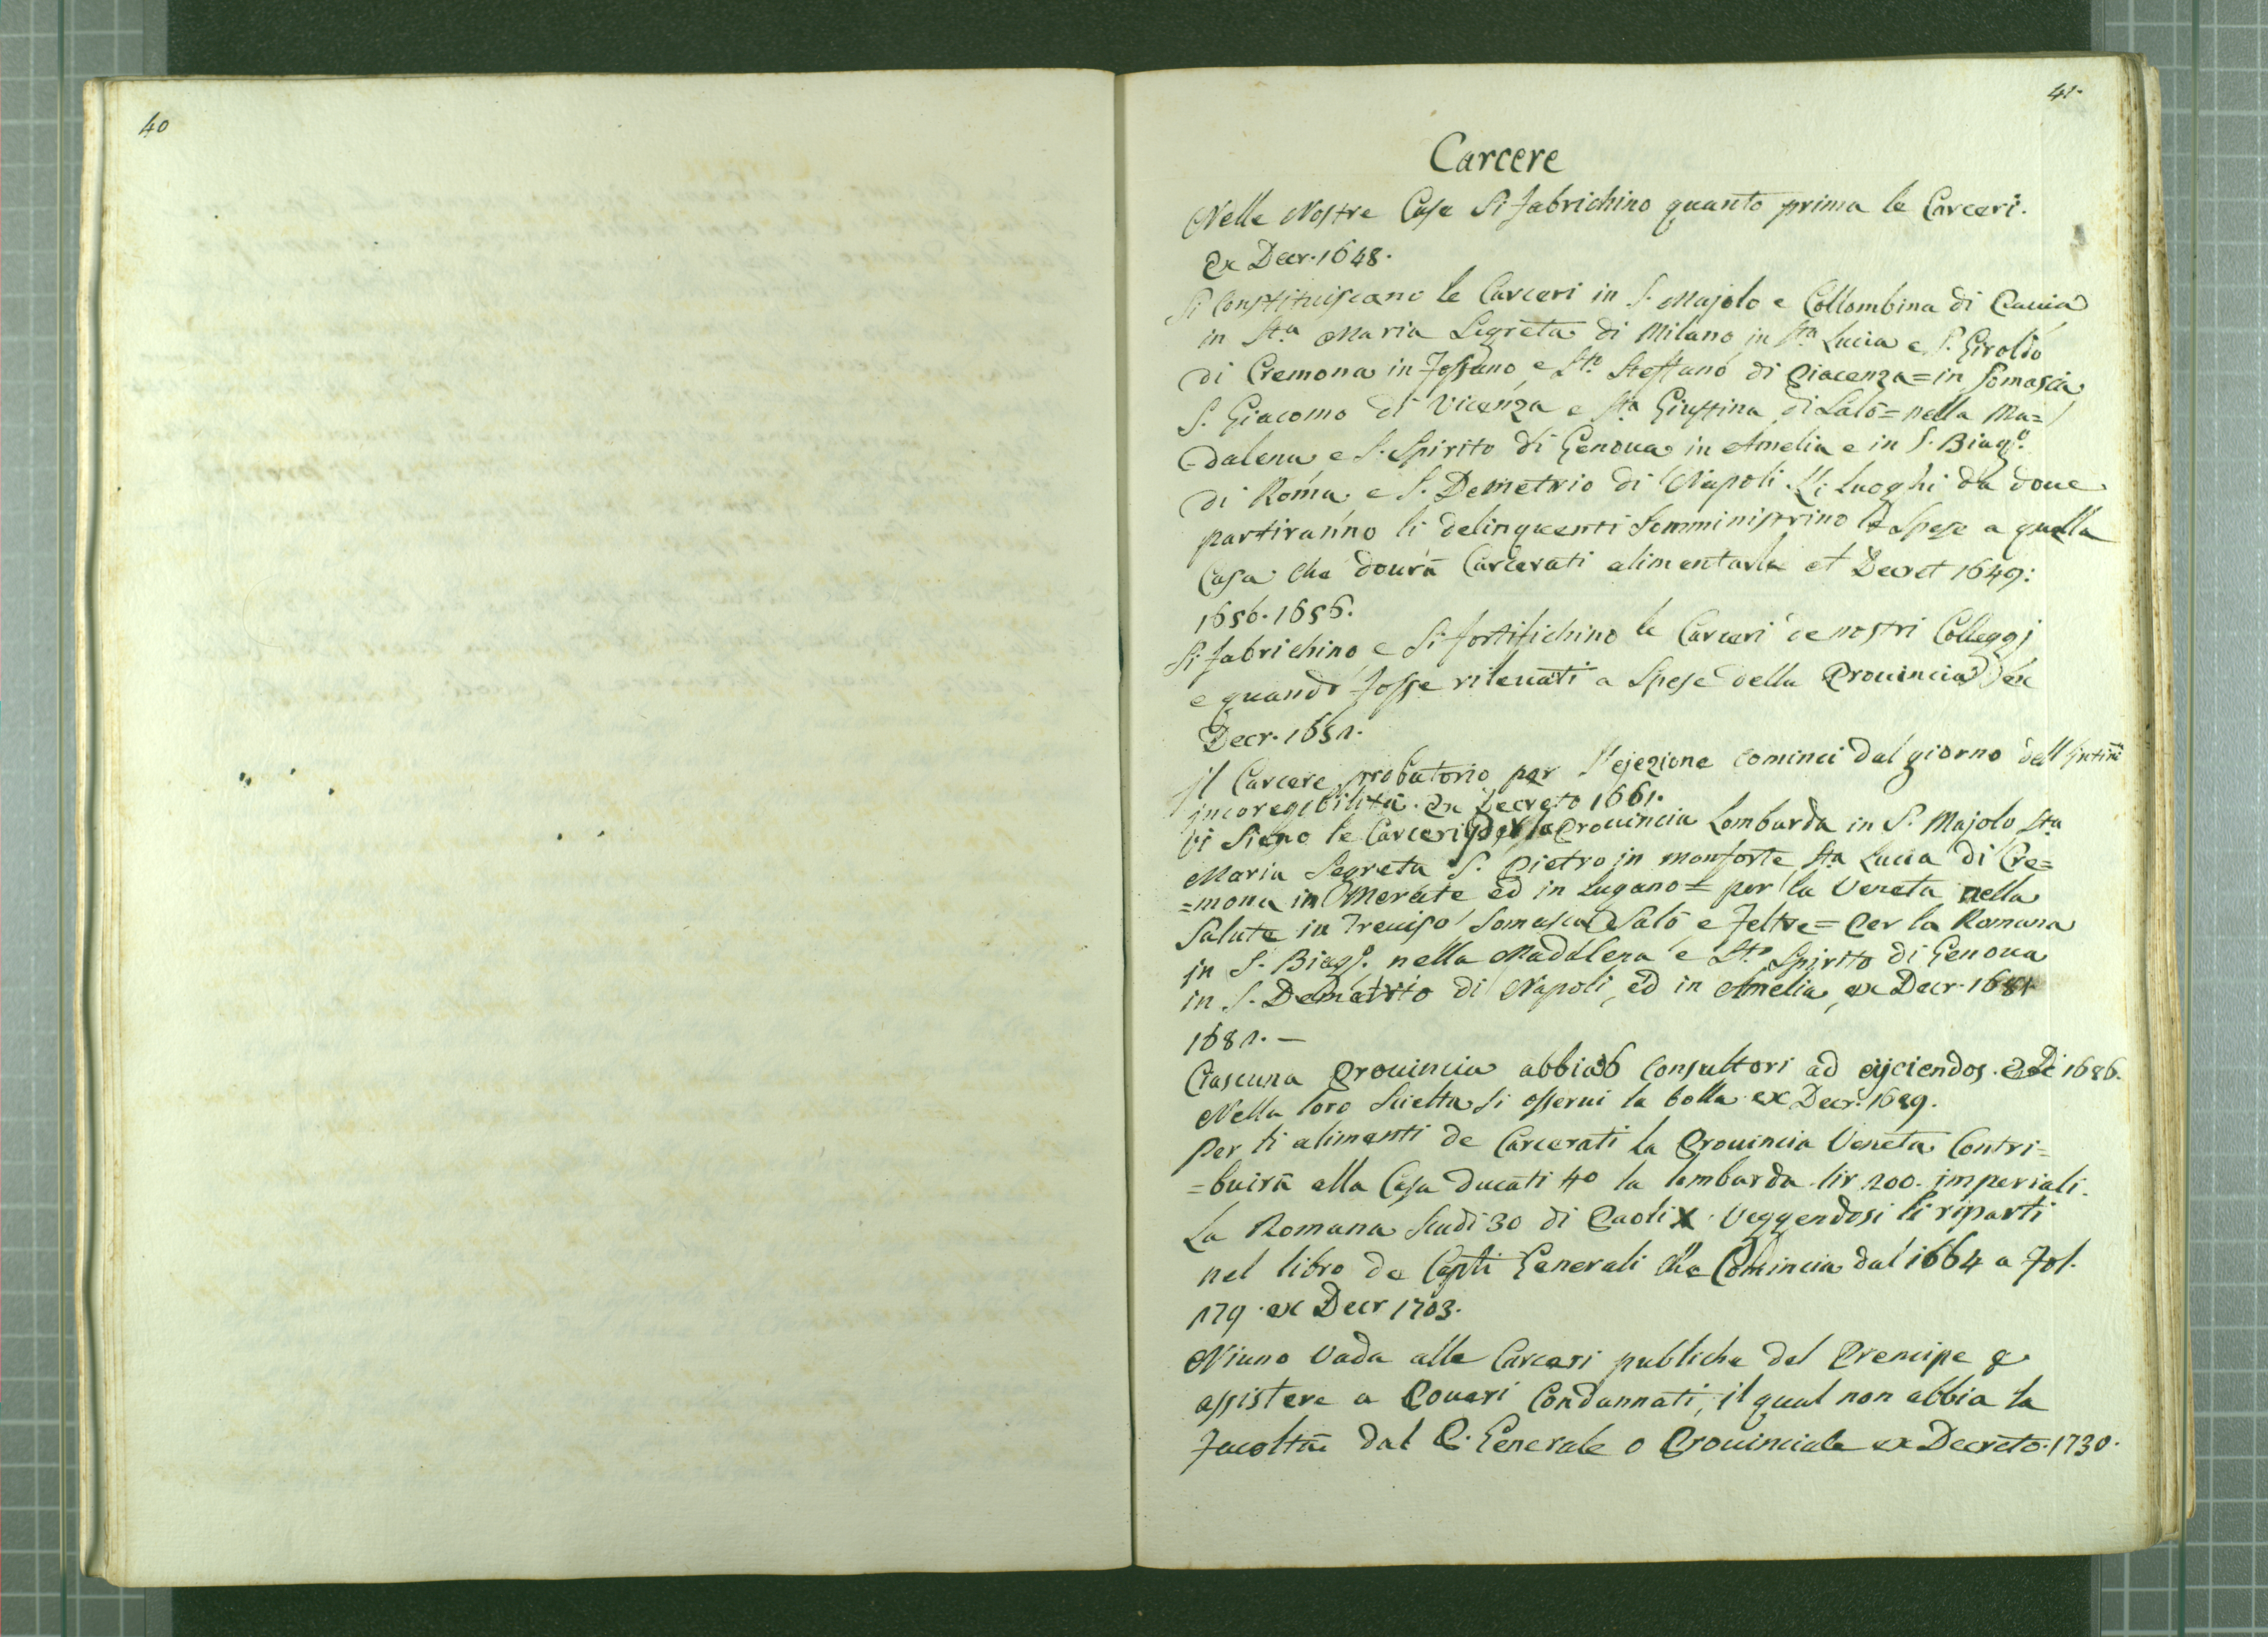 40
41.
Carcere
Nelle Nostre Case Si fabrichino quanto prima le Carceri.
Ex Decr. 1648.
Si Constituiscano le Carceri in S. Majolo e Collombina di Pavia
in Sta Maria Segreta di Milano in Sta Lucia e S. Girolº
di Cremona in Fossano e Sto Steffano di Piacenza = in Somasca
S. Giacomo di Vicenza e Sta Giustina di Salò = nella Ma=
=dalena e S. Spirito di Genoua in Amelia e in S. Biagº.
di Roma e S. Demetrio di Napoli. Li luoghi da doue
partiranno li delinquenti Somministrino le Spese a quella
Casa che dourà Carcerati alimentarli et Decret 1649:
1650. 1656.
Si fabrichino e Si fortifichino le Carceri de nostri Colleggj
e quando fosse ritenuti a Spese della Prouincia ex
Decr. 1651.
Jl Carcere probatorio per l'ejezione cominci dal giorno dell'
jncoregibilità. Ex Decreto 1661.
Vi Sieno le Carceri per la Prouincia Lombarda in S. Majolo Sta
Maria Segreta S. Pietro in monforte Sta Lucia di Cre=
=mona in Merate ed in Lugano = per la Veneta nella
Salute in Treuiso Somasca Salò e Feltre = Per la Romana
in S. Biagº. nella Maddalena e Sto Spirito di Genoua
in S. Demetrio di Napoli, ed in Amelia, ex Decr. 1681
1681. —
Ciascuna Prouincia abbia 6 Consultori ad ejiciendos. 1686.
Nella loro Scielta Si osserui la bolla ex Decr. 1689.
Per li alimenti de Carcerati la Prouincia Veneta Contri=
=buirà alla Casa Ducati 40 la lombarda lir 200. imperiali.
La Romana Scudi 30 di Paoli X. Veggendosi li riparti
nel libro de Capti Generali che Comincia dal 1664 a Fol.
179. ex Decr 1703.
Niuno Vada alle Carceri publiche del Prencipe p
assistere a Poueri Condannati, il qual non abbia la
Facoltà dal P. Generale o Prouinciale ex Decreto. 1730.